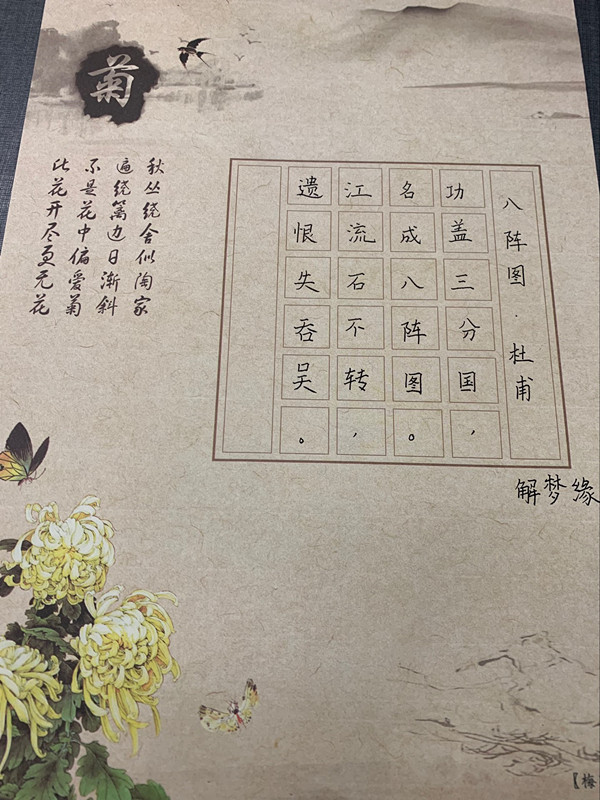 菊
八阵图·杜甫
功盖三分国，
名成八阵图。
江流石不转，
遗恨失吞吴。
秋丛绕舍似陶家
遍绕篱边日渐斜
不是花中偏爱菊
此花开尽更无花
解梦缘
【梅